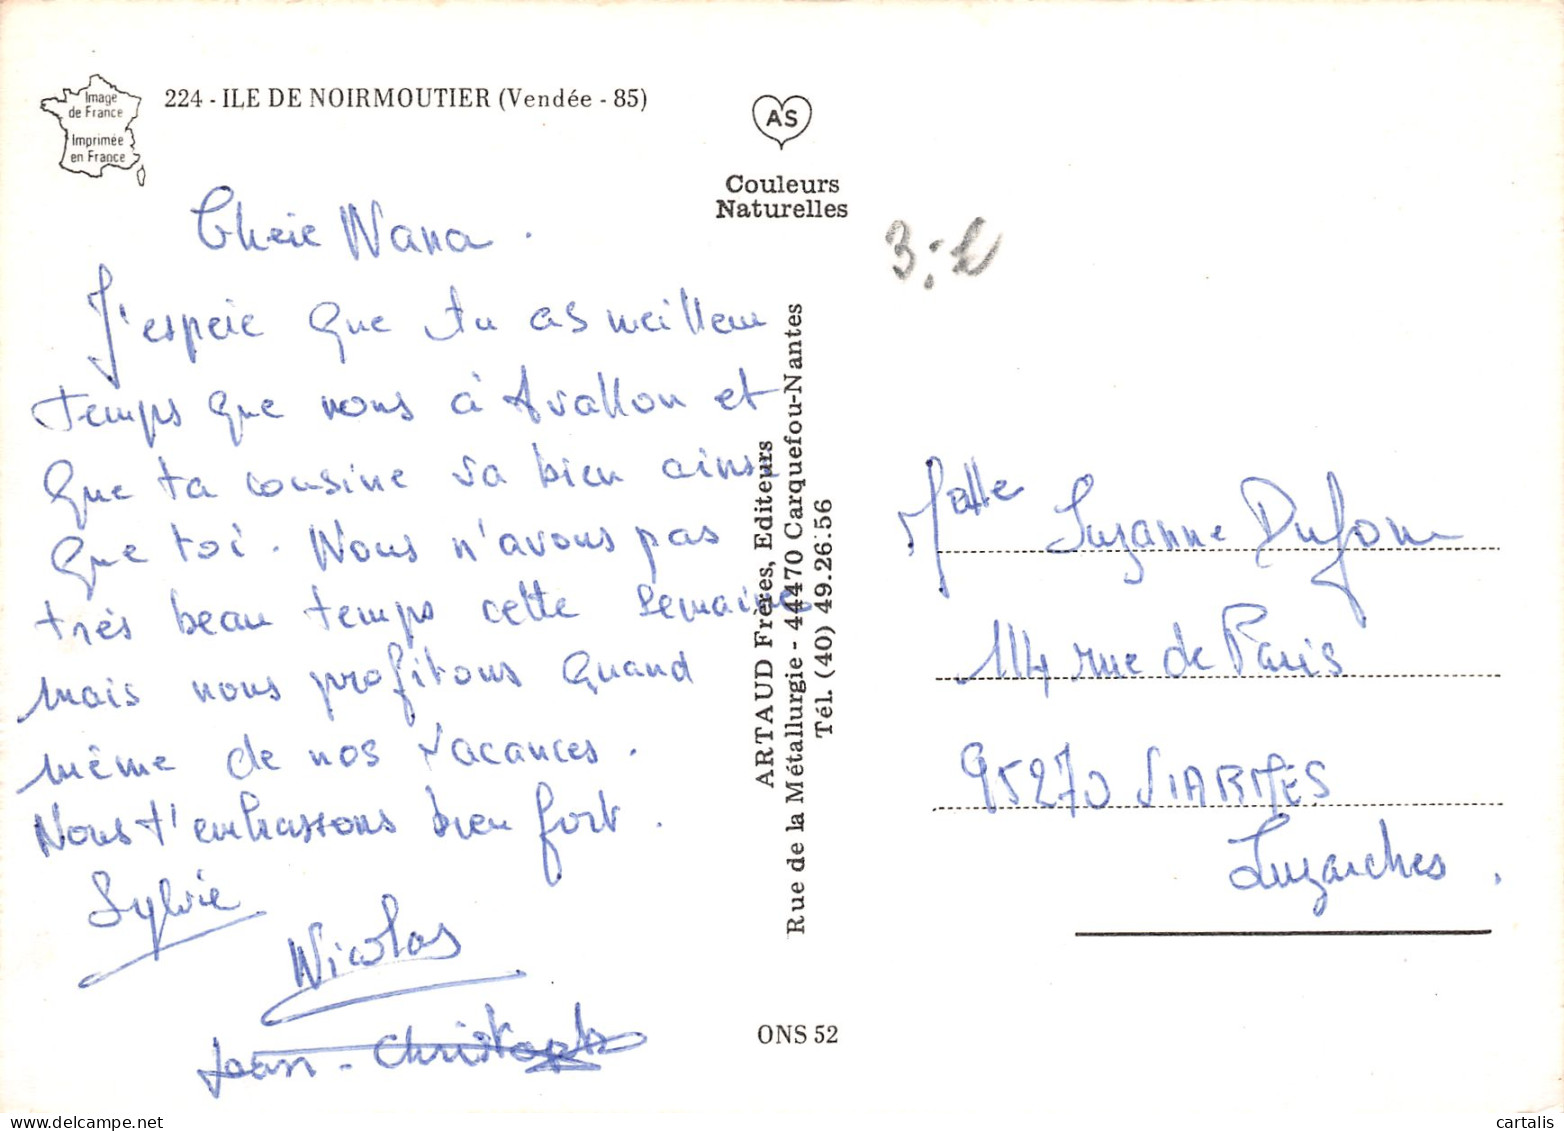 Image
de France
Imprimée
en France
224 - ILE DE NOIRMOUTIER (Vendée - 85)
AS
Couleurs
Naturelles
Chère Nana.
J'espère que tu as meilleur
temps que nous à Avallon et
que ta cousine va bien ainsi
que toi. Nous n'avons pas
très beau temps cette semaine
mais nous profitons quand
même de nos vacances.
Nous t'embrassons bien fort.
Sylvie
Nicolas
Jean-Christophe
ARTAUD Frères, Editeurs
Rue de la Métallurgie - 44470 Carquefou-Nantes
Tél. (40) 49.26.56
ONS 52
Suzanne Dufour
114 rue de Paris
95270 VIARMES
Luzarches.
cartalis